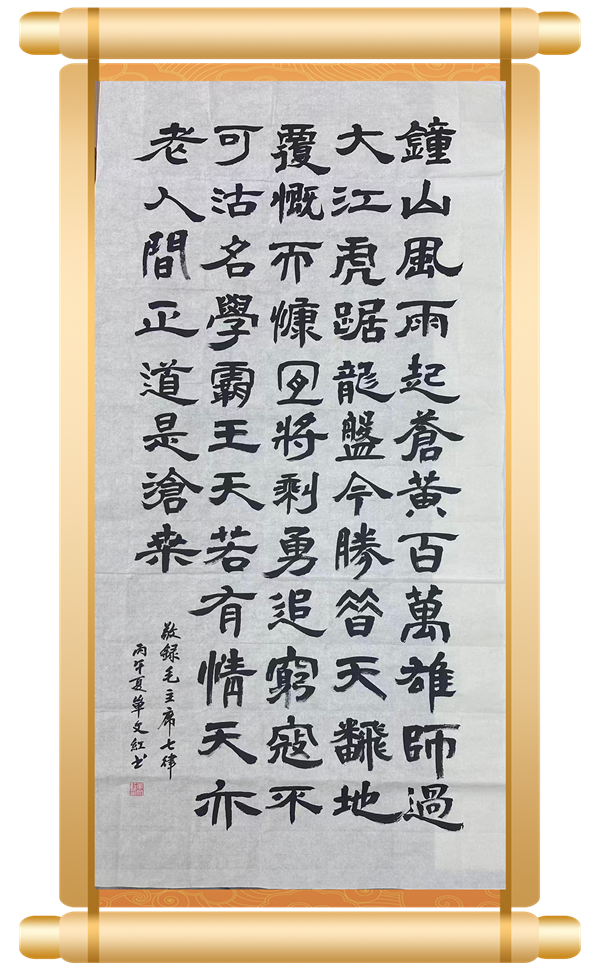 鐘山風雨起蒼黃百萬雄師過
大江虎踞龍盤今勝昔天飜地
覆慨而慷宜將剩勇追窮寇不
可沽名學霸王天若有情天亦
老人間正道是滄桒
敬録毛主席七律
丙午夏單文紅书